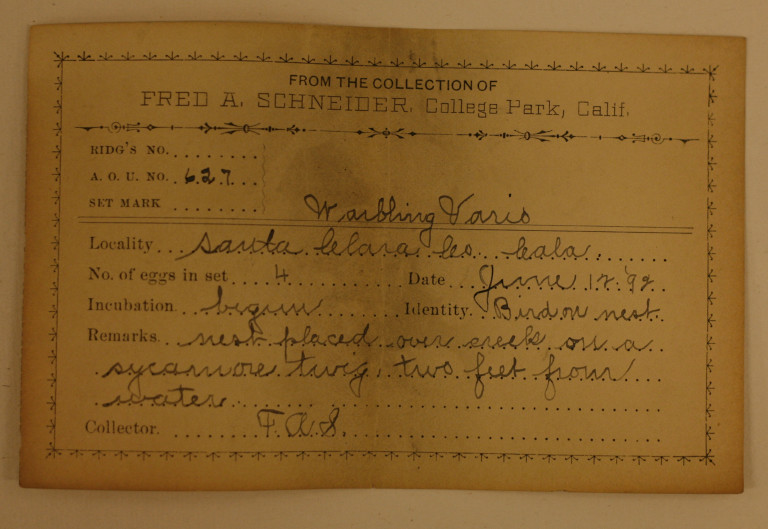 FROM THE COLLECTION OF
FRED A. SCHNEIDER. College Park, Calif.
RIDG'S NO.
A. O. U. NO. 627
SET MARK
Warbling Vario
Locality Santa Clara Co. Cala
No. of eggs in set 4 Date June 12 '92
Incubation begun Identity. Bird on nest
Remarks nest placed over creek on a
sycamore twig, two feet from
water
Collector F. A. S.